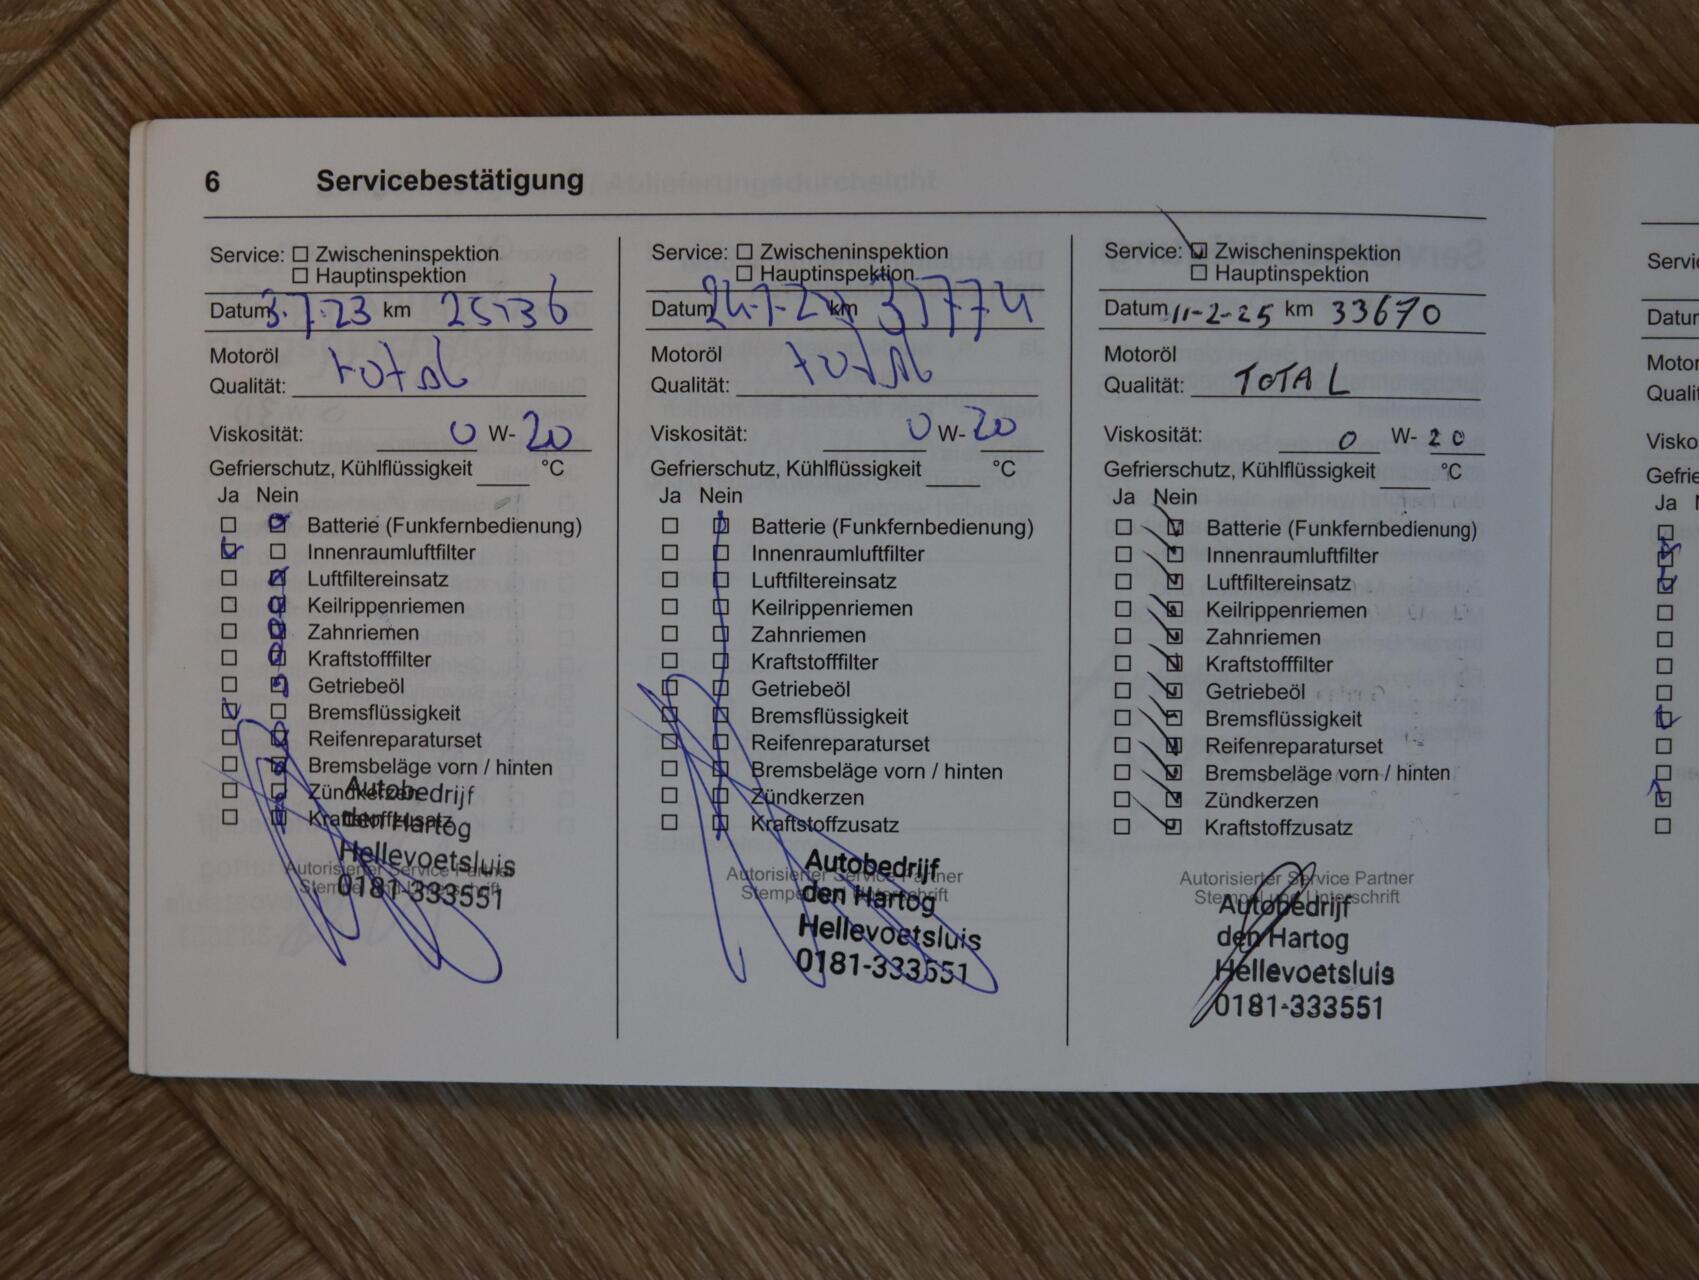 6 Servicebestätigung
Service: Zwischeninspektion
Hauptinspektion
Datum 3-7-23 km
Motoröl
Qualität: total
Viskosität: 0 W- 20
Gefrierschutz, Kühlflüssigkeit °C
Ja Nein
Batterie (Funkfernbedienung)
Innenraumluftfilter
Luftfiltereinsatz
Keilrippenriemen
Zahnriemen
Kraftstofffilter
Getriebeöl
Bremsflüssigkeit
Reifenreparaturset
Bremsbeläge vorn / hinten
Zündkerzen
Kraftstoffzusatz
Autorisierter Service Partner
Stempel und Unterschrift
Autobedrijf
den Hartog
Hellevoetsluis
0181-333551
Service: Zwischeninspektion
Hauptinspektion
Datum km
Motoröl
Qualität: total
Viskosität: 0 W- 20
Gefrierschutz, Kühlflüssigkeit °C
Ja Nein
Batterie (Funkfernbedienung)
Innenraumluftfilter
Luftfiltereinsatz
Keilrippenriemen
Zahnriemen
Kraftstofffilter
Getriebeöl
Bremsflüssigkeit
Reifenreparaturset
Bremsbeläge vorn / hinten
Zündkerzen
Kraftstoffzusatz
Autorisierter Service Partner
Stempel und Unterschrift
Autobedrijf
den Hartog
Hellevoetsluis
0181-333551
Service: Zwischeninspektion
Hauptinspektion
Datum 11-2-25 km 33670
Motoröl
Qualität: TOTAL
Viskosität: 0 W- 20
Gefrierschutz, Kühlflüssigkeit °C
Ja Nein
Batterie (Funkfernbedienung)
Innenraumluftfilter
Luftfiltereinsatz
Keilrippenriemen
Zahnriemen
Kraftstofffilter
Getriebeöl
Bremsflüssigkeit
Reifenreparaturset
Bremsbeläge vorn / hinten
Zündkerzen
Kraftstoffzusatz
Autorisierter Service Partner
Stempel und Unterschrift
Autobedrijf
den Hartog
Hellevoetsluis
0181-333551
Ja